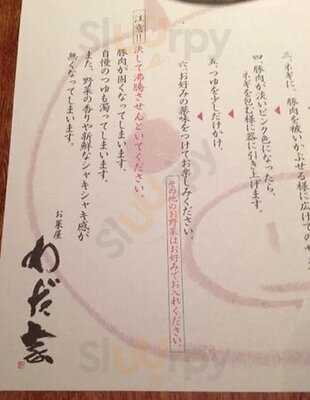 三、ネギに、豚肉を被いかぶせる様に広げての
四、豚肉が淡いピンク色になったら、
ネギを包む様に器に引き上げます。
五、つゆを少しだけかけ、
六、お好みの薬味をつけてお楽しみください。
その他のお野菜はお好みでお入れください。
注意!! 決して沸騰させんといてください。
豚肉が固くなってしまいます。
自慢のつゆも濁ってしまいます。
また、野菜の香りや新鮮なシャキシャキ感が
無くなってしまいます。
お菜屋
わだ家
Sluurpy